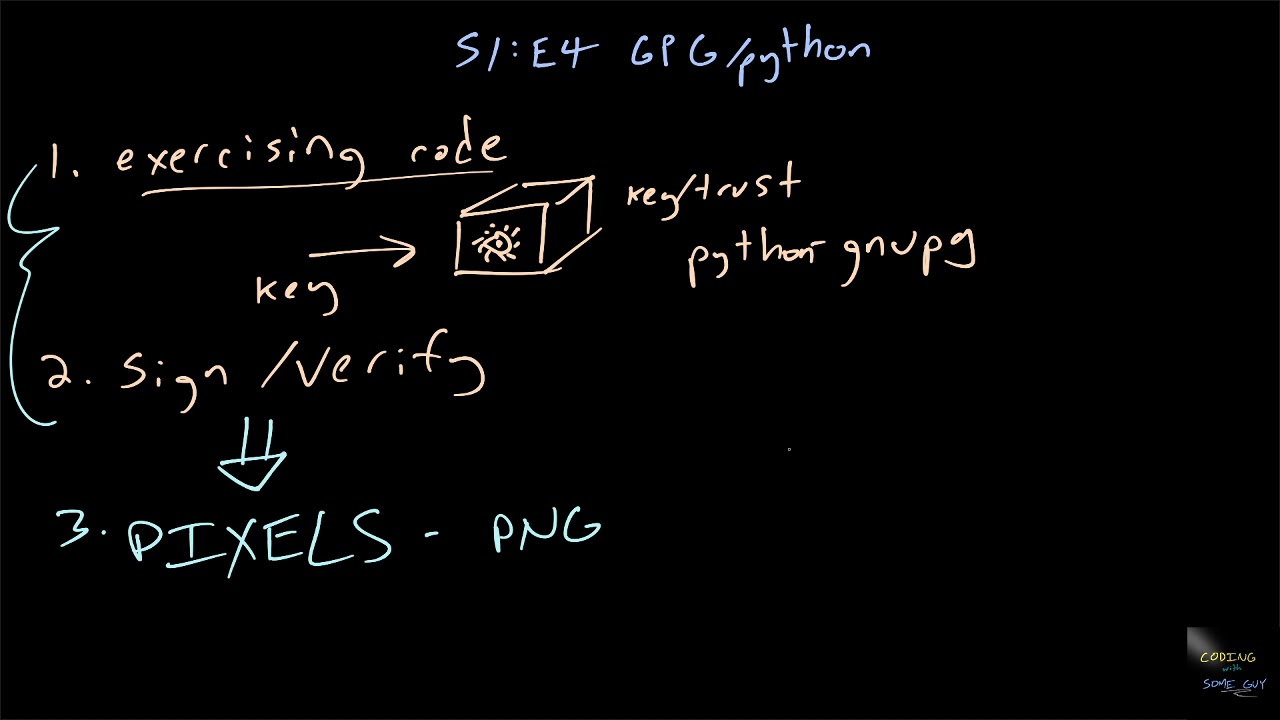 S1:E4 GPG/python
1. exercising code
key/trust
python-gnupg
key
2. sign/verify
3. PIXELS - PNG
CODING
with
SOME GUY